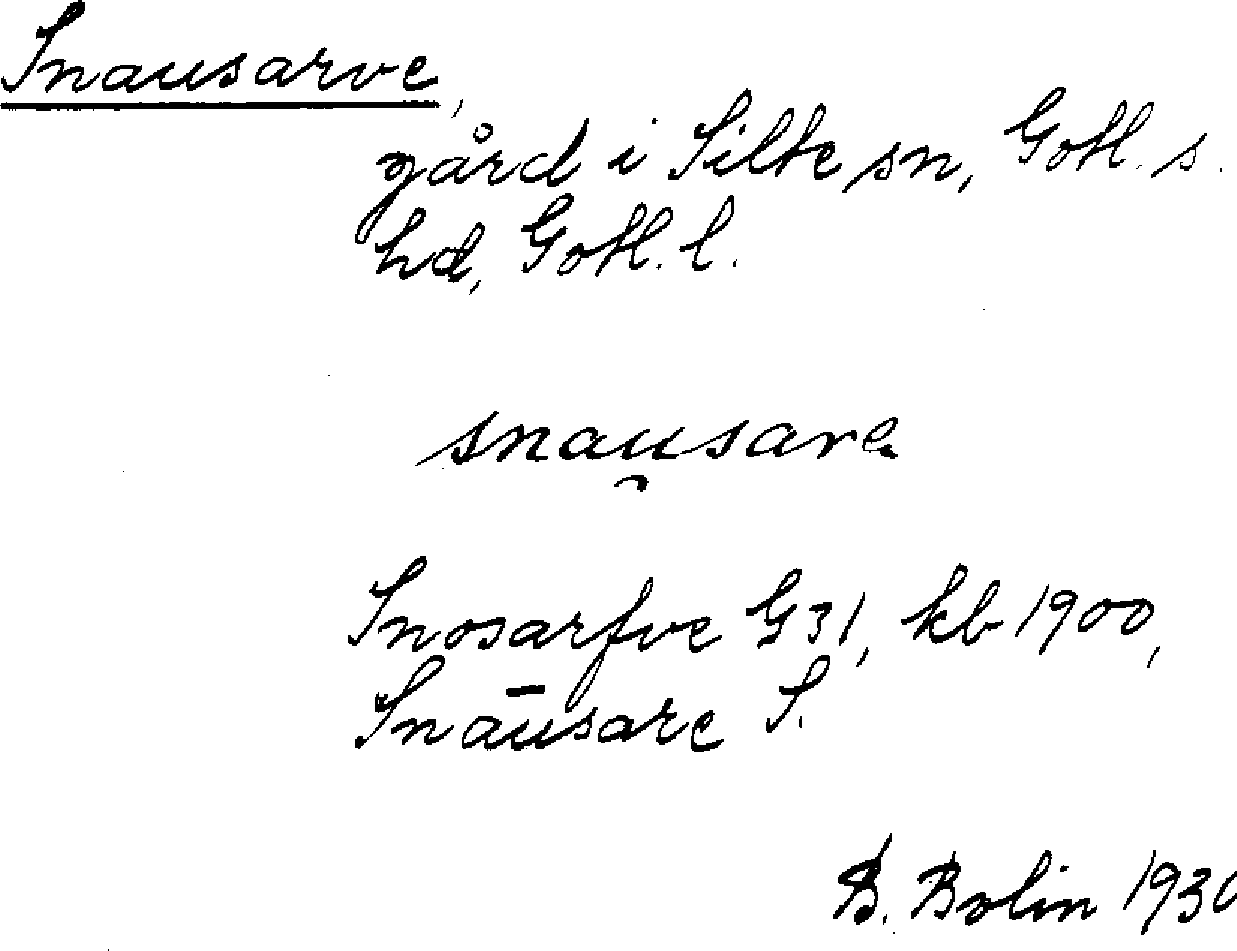 Snausarve,
gård i Silte sn, Gotl. s.
hd, Gotl. l.
snau̯sare
Snosarfve G31, kb 1900,
Snāūsare S.
B. Bolin 1930